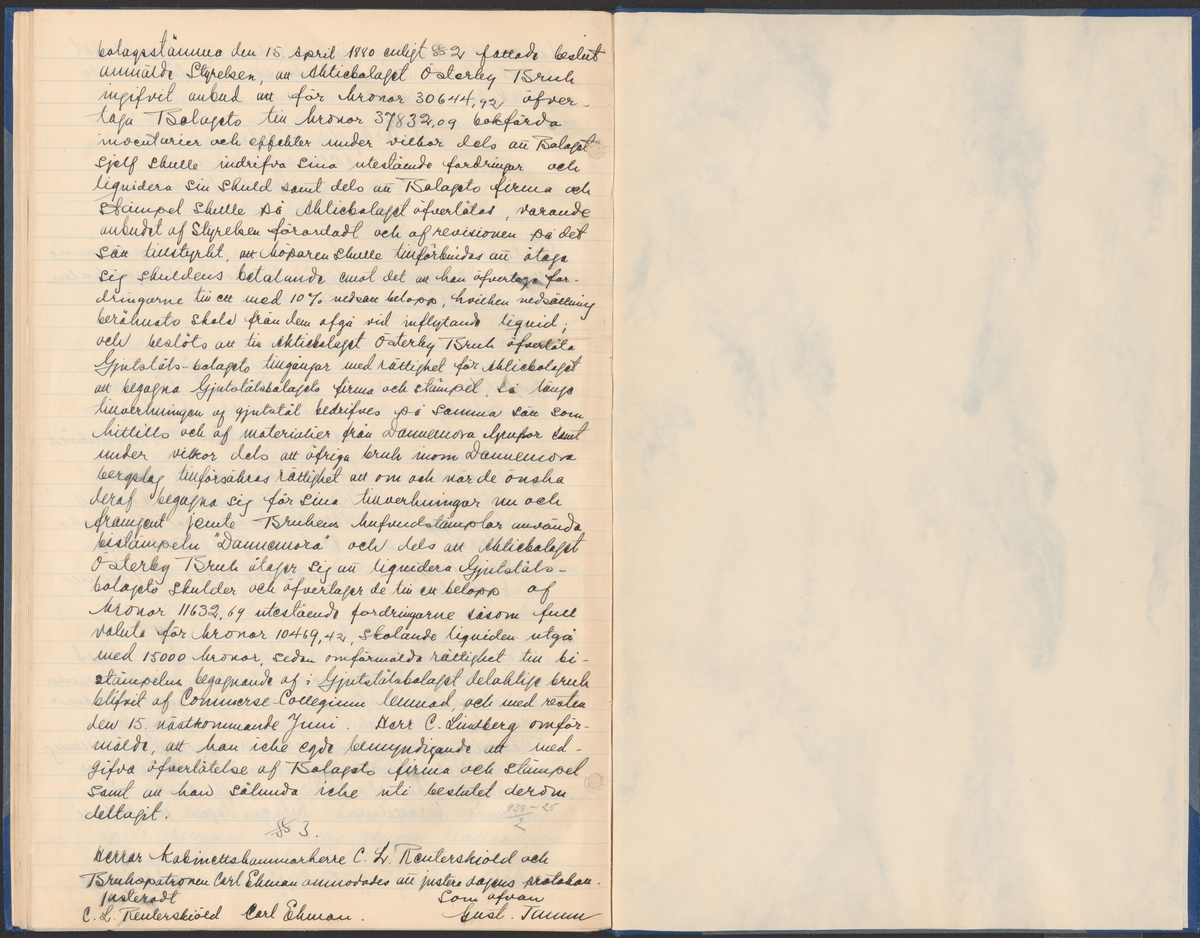 bolagsstämma den 15 April 1880 enligt § 2 fattade beslut
anmälde Styrelsen, att Aktiebolaget Österby Bruk
ingifvit anbud att för kronor 30644,92 öfver-
taga Bolagets till kronor 37832,09 bokförda
inventarier och effekter under vilkor dels att Bolaget
sjelf skulle indrifva sina utestående fordringar och
liquidera sin skuld samt dels att Bolagets firma och
stämpel skulle på Aktiebolaget öfverlåtas, varande
anbudet af Styrelsen förordadt och af revisionen på det
sätt tillstyrkt, att köparen skulle tillförbindas att åtaga
sig skuldens betalande emot det att han öfvertoge for-
dringarne till ett med 10% nedsatt belopp, hvilken nedsättning
beräknats skola från dem afgå vid inflytande liquid;
och beslöts att till Aktiebolaget Österby Bruk öfverlåta
Gjutståls-bolagets tillgångar med rättighet för Aktiebolaget
att begagna Gjutstålsbolagets firma och stämpel, så länge
tillverkningen af gjutstål bedrifves på samma sätt som
hittills och af materialier från Dannemora Grufvor samt
under vilkor dels att öfriga bruk inom Dannemora
bergslag tillförsäkras rättighet att om och när de önska
deraf begagna sig för sina tillverkningar nu och
framgent jemte Brukens hufvudstämplar använda
bistämpeln "Dannemora" och dels att Aktiebolaget
Österby Bruk åtager sig att liquidera Gjutståls-
bolagets skulder och öfvertager de till ett belopp af
kronor 11632,69 utestående fordringarne såsom full
valuta för kronor 10469,42, skolande liquiden utgå
med 15000 kronor, sedan omförmälda rättighet till bi-
stämpelns begagnande af i Gjutstålsbolaget delaktige bruk
blifvit af Commerse-Collegium lemnad, och med resten
den 15 nästkommande Juni. Herr C. Lindberg omför-
mälde, att han icke egde bemyndigande att med-
gifva öfverlåtelse af Bolagets firma och stämpel
samt att han sålunda icke uti beslutet derom
deltagit.
§ 3.
Herrar Kabinettskammarherre C. L. Reuterskiöld och
Brukspatronen Carl Ekman anmodades att justera dagens protokoll.
Justeradt Som ofvan
C. L. Reuterskiöld Carl Ekman. Gust. Tamm